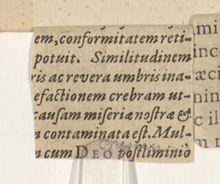 em, conformitatem reti-
potuit. Similitudinem
ris ac revera umbris ina-
efactionem crebram ut-
causam miseriæ nostræ &
n contaminata est. Mul-
n cum DEO postliminio